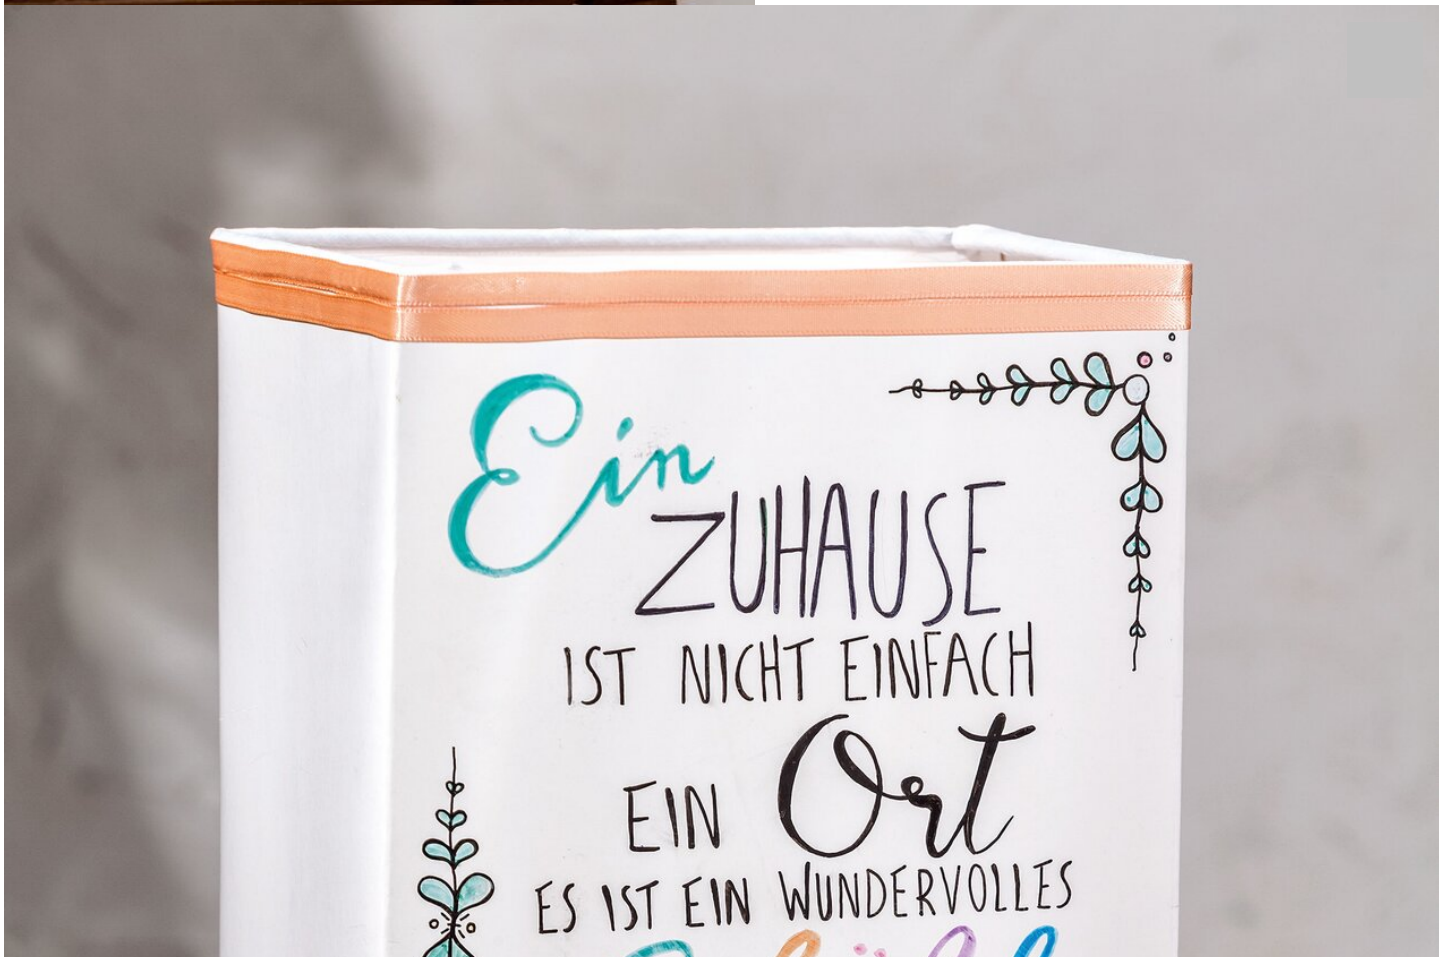 Ein
ZUHAUSE
IST NICHT EINFACH
EIN Ort
ES IST EIN WUNDERVOLLES